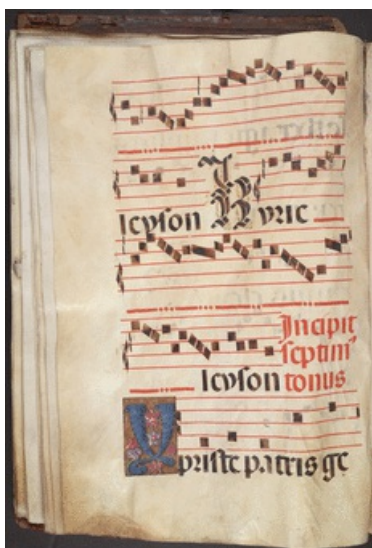 leyson Kyrie
Incipit
septim'
leyson tonus
Xpriste patris ge